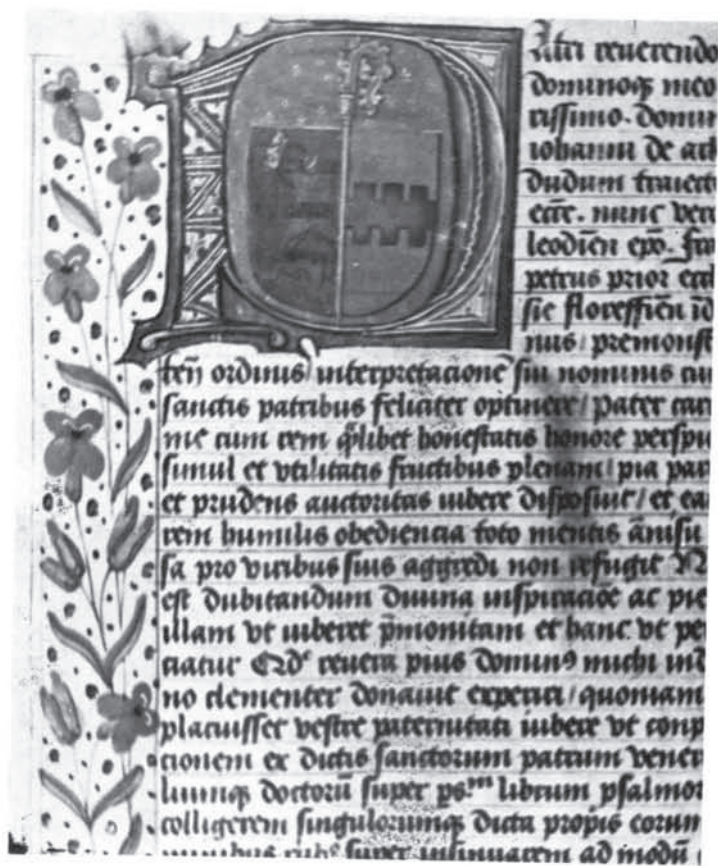 Patri reuerendo
dominoq meo
rissimo. domin
iohanni de
dudum traiect
ecce. nunc vero
leodien̄ epo. fra
petrus prior eccl
sie floreffien̄ id
nus / premonst
ten̄ ordinis / interpretacionē sui nominis cu
sanctis patribus feliciter optinere / pater cari
me cum rem q̄libet honestatis honore perspu
simul et vtilitatis fructibus plenam / pia pa
et prudens auctoritas iubere disposuit / et ea
rem humilis obediencia toto mentis ānisu
sa pro viribus suis aggredi non refugit N
est dubitandum diuina inspiracioē ac pie
illam vt iuberet p̄monitam et hanc vt pe
ciatur Qd' reuera pius domin9 michi ind
no clementer donauit experiri / quoniam
placuisset vestre paternitati iubere vt conp
cionem ex dictis sanctorum patrum vener
liumq doctorū super ps.mm librum psalmor
colligerem singulorumq dicta propis corum
nominibus super insinuarem ad modū